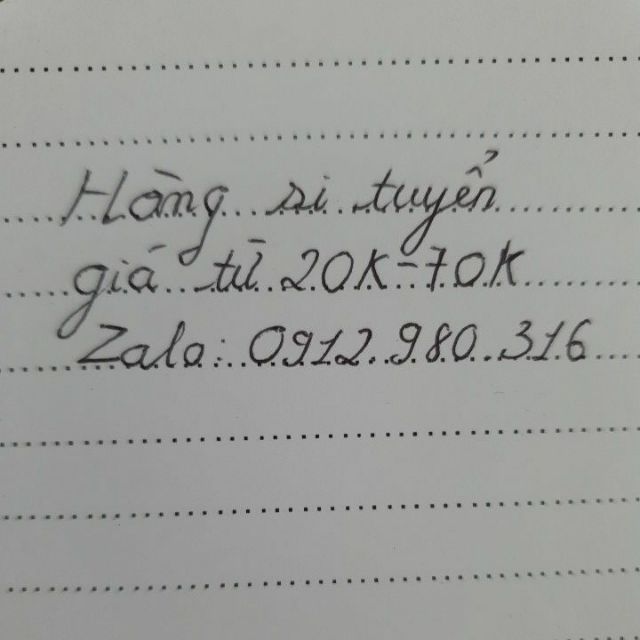 Hàng si tuyển
giá từ 20K-70K
Zalo: 0912.980.316